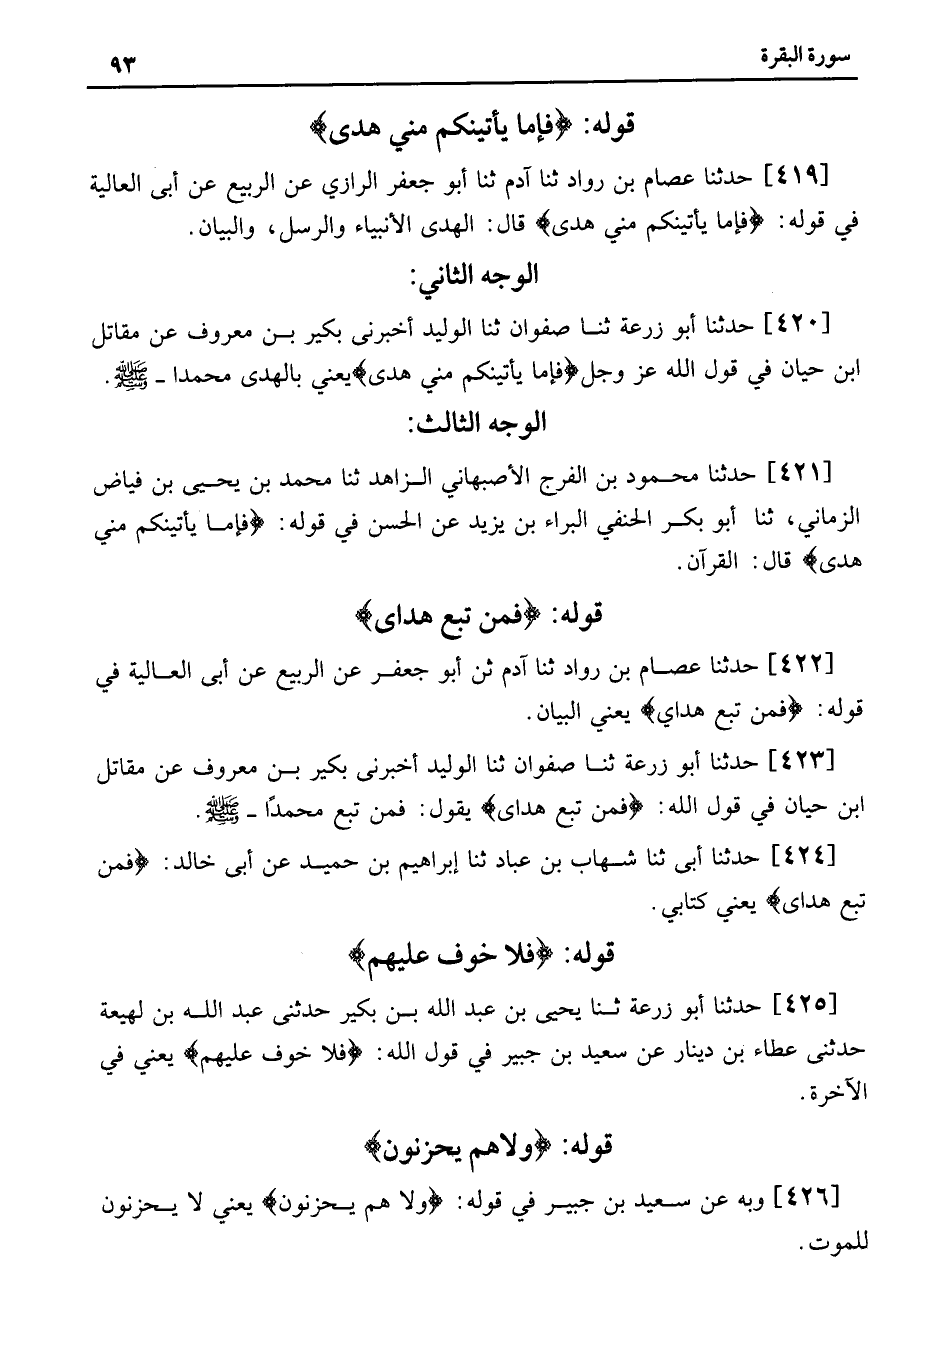 سورة البقرة
٩٣
قوله: ﴿فإما يأتينكم مني هدى﴾
[٤١٩] حدثنا عصام بن رواد ثنا آدم ثنا أبو جعفر الرازي عن الربيع عن أبى العالية
في قوله: ﴿فإما يأتينكم مني هدى﴾ قال: الهدى الأنبياء والرسل، والبيان.
الوجه الثاني:
[٤٢٠] حدثنا أبو زرعة ثنا صفوان ثنا الوليد أخبرنى بكير بن معروف عن مقاتل
ابن حيان في قول الله عز وجل﴿فإما يأتينكم مني هدى﴾يعني بالهدى محمدا ـ ﷺ.
الوجه الثالث:
[٤٢١] حدثنا محمود بن الفرج الأصبهاني الزاهد ثنا محمد بن يحيى بن فياض
الزماني، ثنا أبو بكر الحنفي البراء بن يزيد عن الحسن في قوله: ﴿فإما يأتينكم مني
هدى﴾ قال: القرآن.
قوله: ﴿فمن تبع هداى﴾
[٤٢٢] حدثنا عصام بن رواد ثنا آدم ثن أبو جعفر عن الربيع عن أبى العالية في
قوله: ﴿فمن تبع هداي﴾ يعني البيان.
[٤٢٣] حدثنا أبو زرعة ثنا صفوان ثنا الوليد أخبرنى بكير بن معروف عن مقاتل
ابن حيان في قول الله: ﴿فمن تبع هداى﴾ يقول: فمن تبع محمدًا ـ ﷺ.
[٤٢٤] حدثنا أبى ثنا شهاب بن عباد ثنا إبراهيم بن حميد عن أبى خالد: ﴿فمن
تبع هداى﴾ يعني كتابي.
قوله: ﴿فلا خوف عليهم﴾
[٤٢٥] حدثنا أبو زرعة ثنا يحيى بن عبد الله بن بكير حدثنى عبد الله بن لهيعة
حدثنى عطاء بن دينار عن سعيد بن جبير في قول الله: ﴿فلا خوف عليهم﴾ يعني في
الآخرة.
قوله: ﴿ولاهم يحزنون﴾
[٤٢٦] وبه عن سعيد بن جبير في قوله: ﴿ولا هم يحزنون﴾ يعني لا يحزنون
للموت.